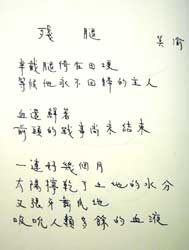 殘腿
吳渝
半截腿倚在田埂
等候他永不回歸的主人
血還鮮著
前頭的戰事尚未結束
一連好幾個月
太陽擰乾了土地的水分
又張牙舞爪地
吸吮人類多餘的血液